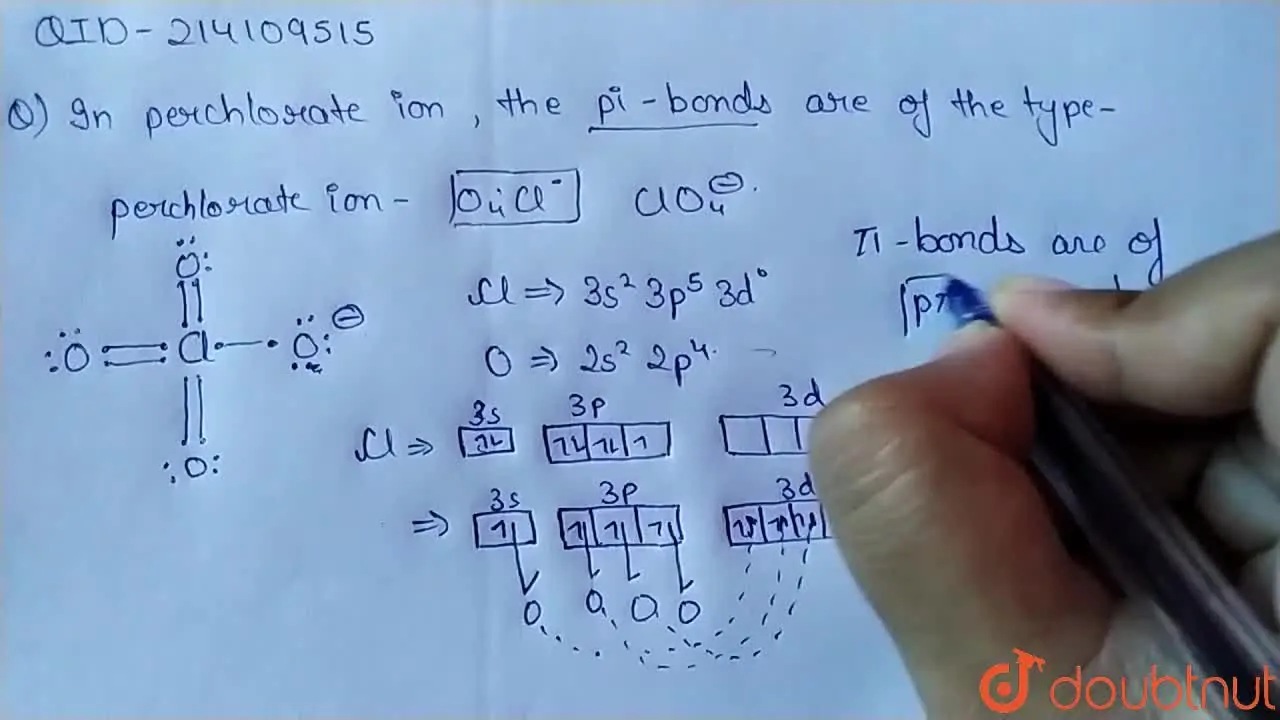 QID - 214109515
Q) In perchlorate ion, the pi-bonds are of the type-
perchlorate ion - O₄Cl⁻ ClO₄⊖.
π-bonds are of
pπ
Cl ⇒ 3s² 3p⁵ 3d⁰
O ⇒ 2s² 2p⁴.
O
O Cl O ⊖
O
3s 3p 3d
Cl ⇒
3s 3p 3d
⇒
O O O O
doubtnut